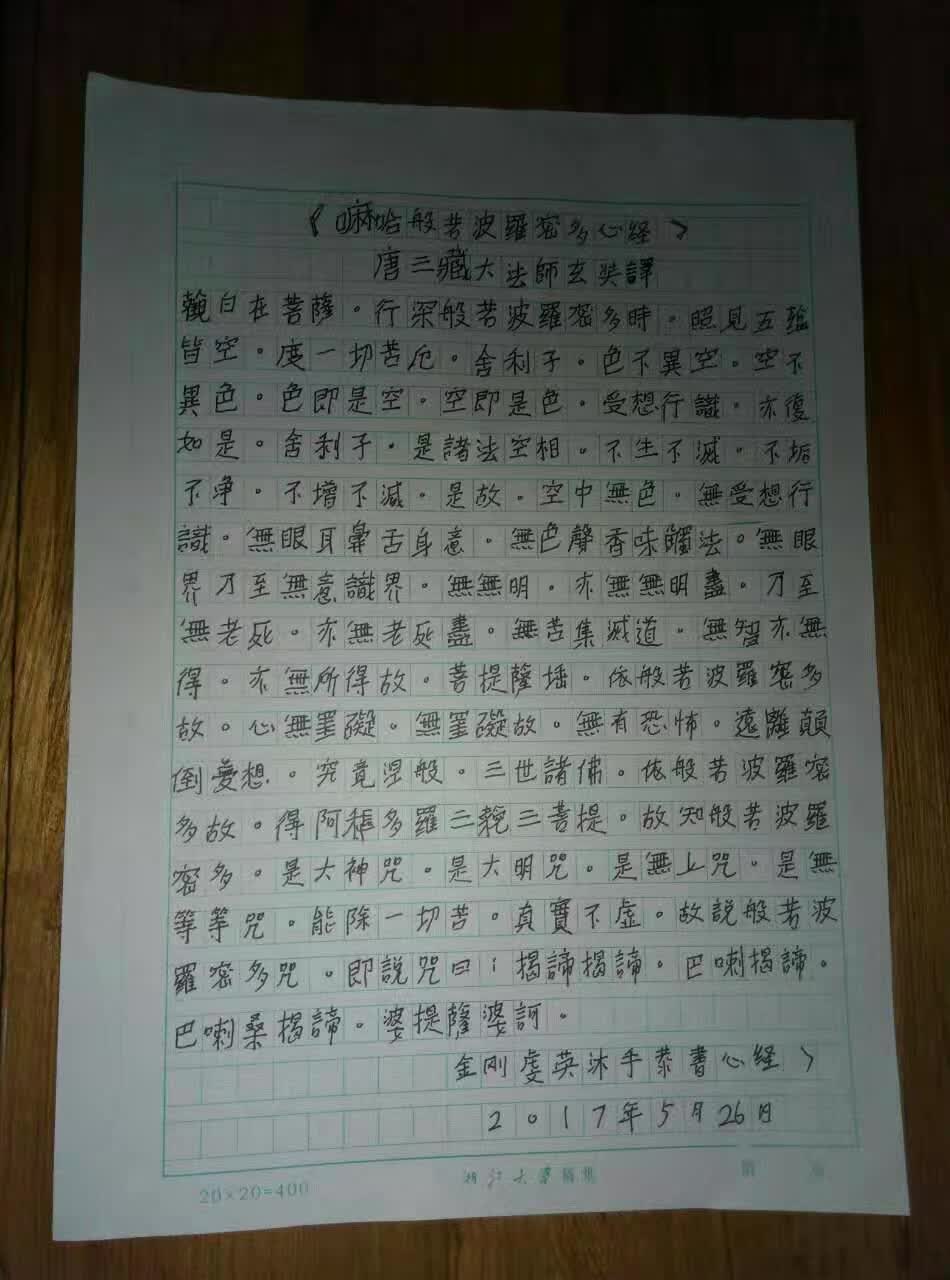 《嘛哈般若波羅密多心経》
唐三藏大法師玄奘譯
觀自在菩薩。行深般若波羅密多時。照見五蕴
皆空。度一切苦厄。舍利子。色不異空。空不
異色。色即是空。空即是色。受想行識。亦復
如是。舍利子。是諸法空相。不生不滅。不垢
不净。不增不減。是故。空中無色。無受想行
識。無眼耳鼻舌身意。無色聲香味觸法。無眼
界乃至無意識界。無無明。亦無無明盡。乃至
無老死。亦無老死盡。無苦集滅道。無智亦無
得。亦無所得故。菩提薩埵。依般若波羅密多
故。心無罣礙。無罣礙故。無有恐怖。遠離顛
倒夢想。究竟涅般。三世諸佛。依般若波羅密
多故。得阿耨多羅三藐三菩提。故知般若波羅
密多。是大神咒。是大明咒。是無上咒。是無
等等咒。能除一切苦。真實不虛。故說般若波
羅密多咒。即說咒曰：揭諦揭諦。巴喇揭諦。
巴喇桑揭諦。婆提薩婆訶。
金刚虔英沐手恭書心経》
2017年5月26日
20×20=400 浙江大學稿纸